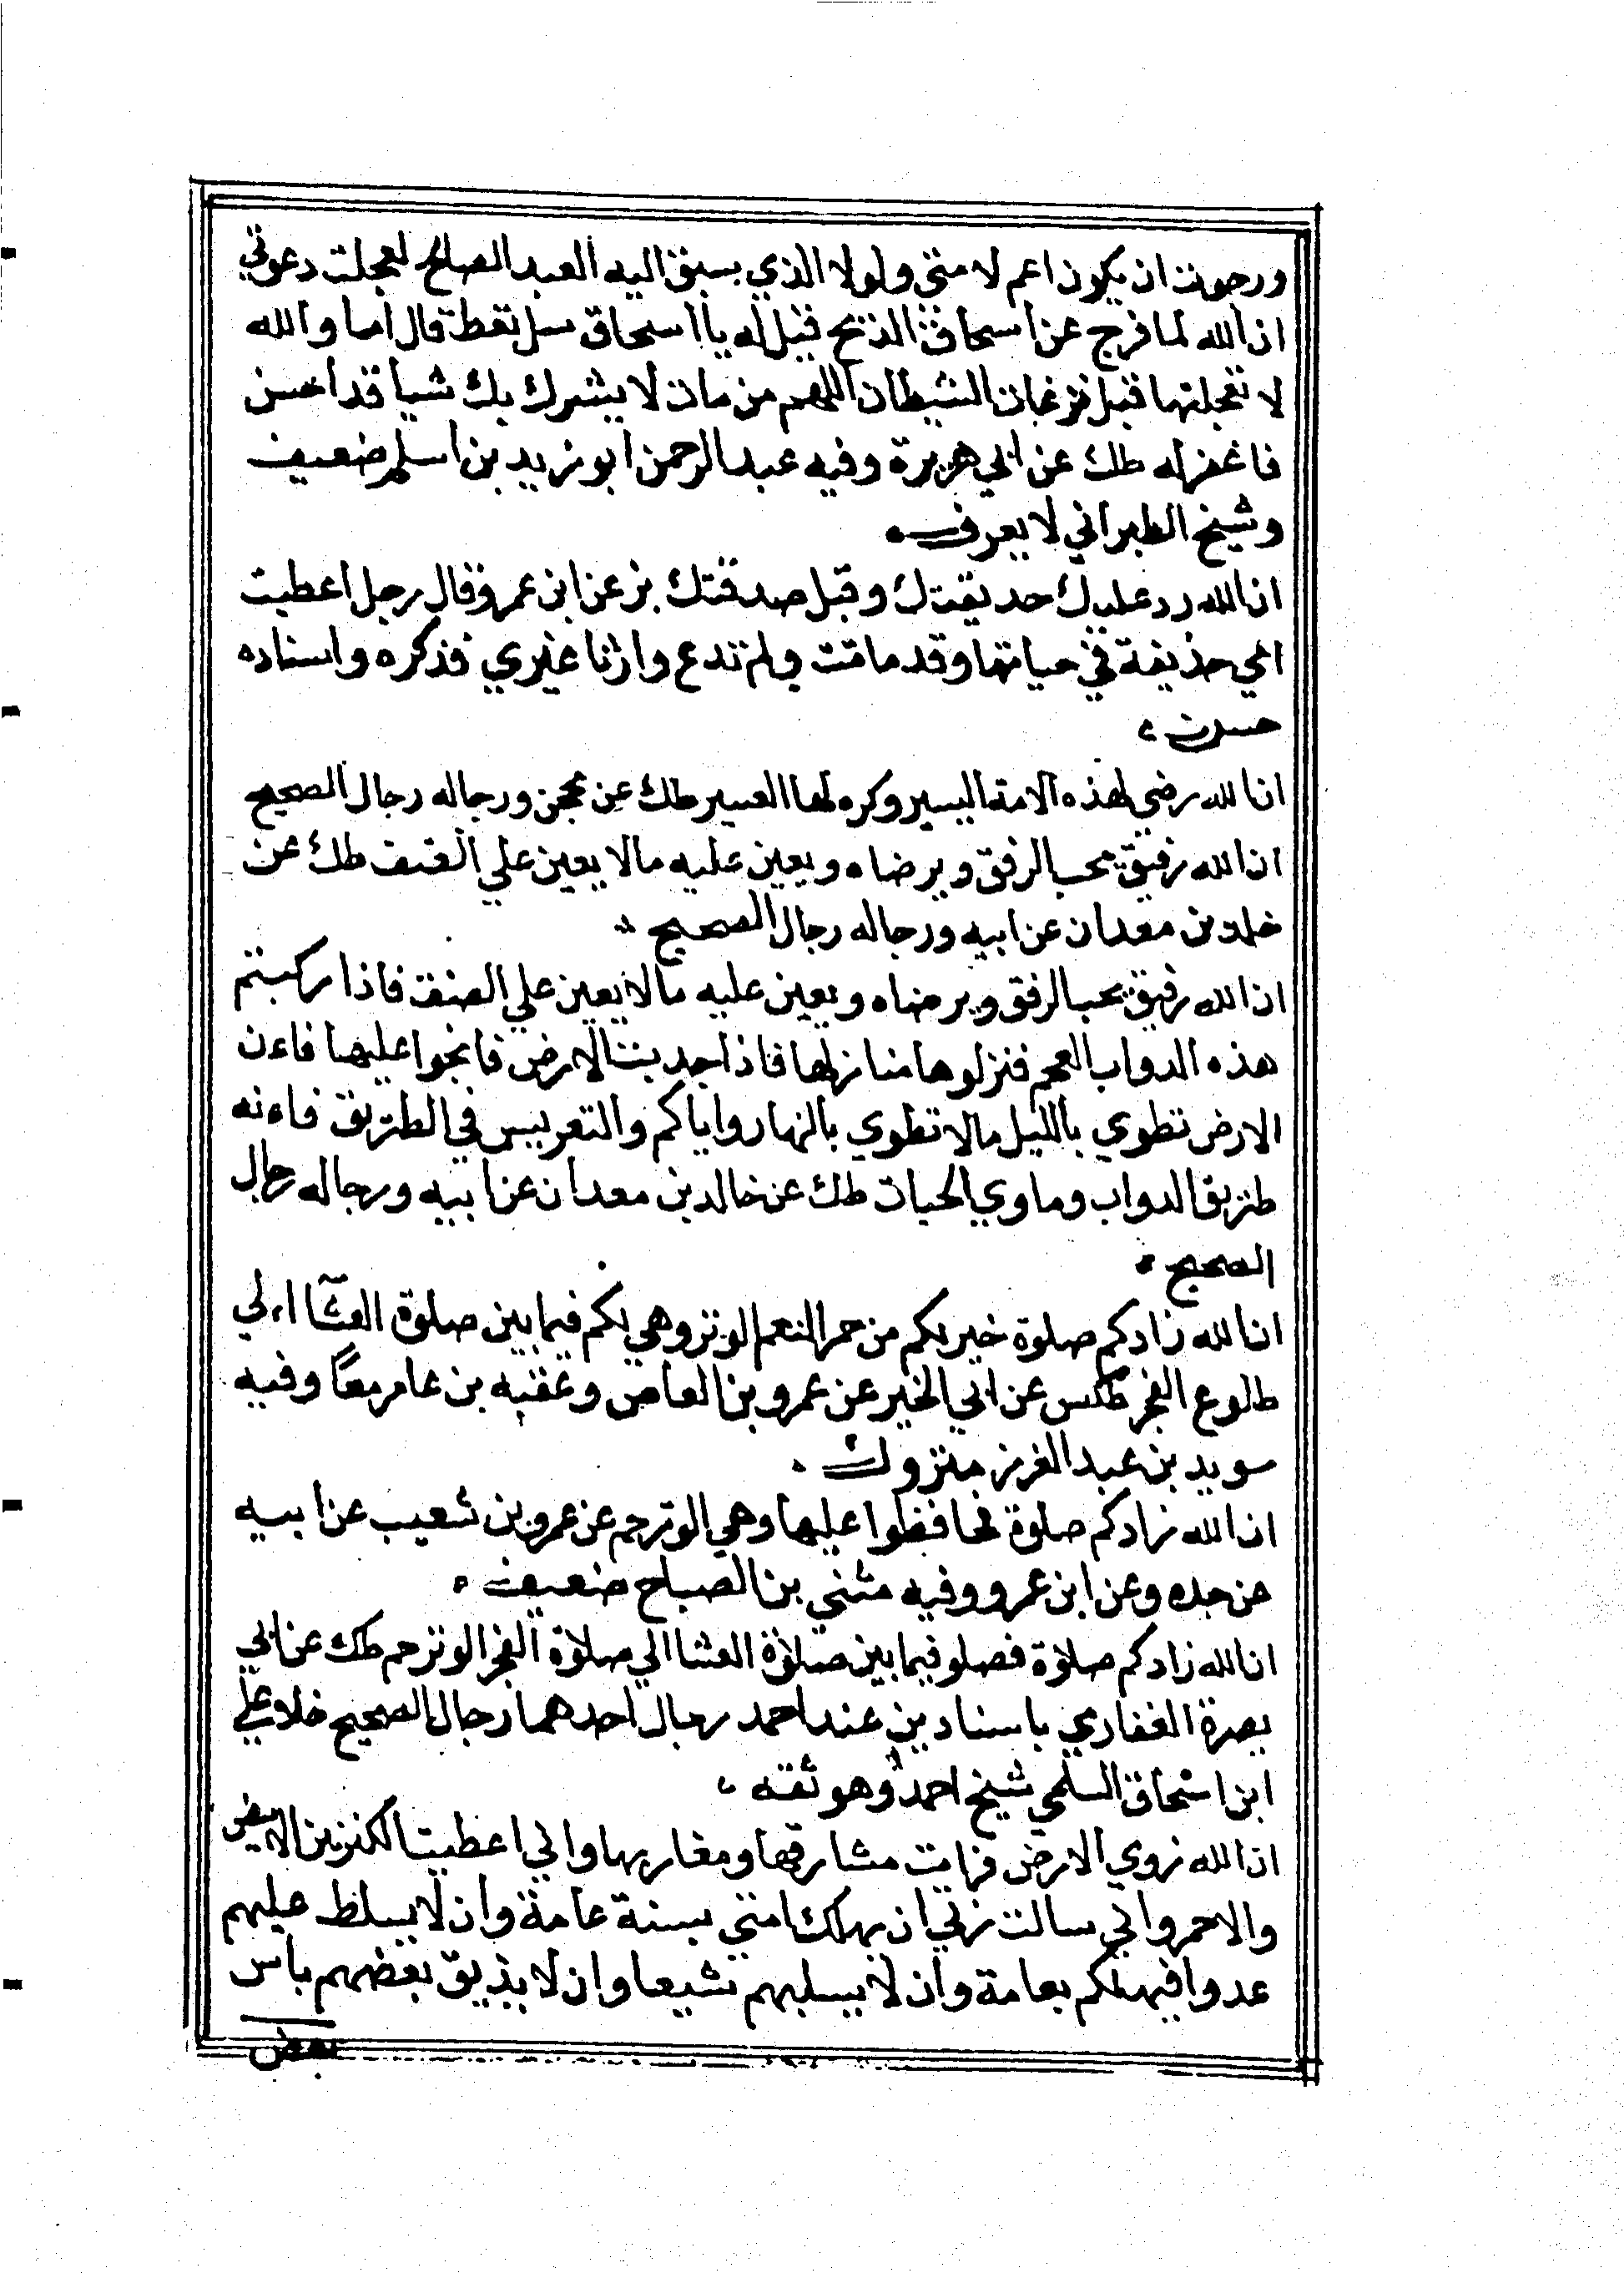 ورجوت ان يكون اعم لامتي ولولا الذي سبق اليه العبد الصالح لعجلت دعوتي
ان الله لما فرج عن اسحاق الذبح قيل له يا اسحاق سل تعط قال اما والله
لا تعجلنها قبل نزغات الشيطان اللهم من مات لا يشرك بك شيا قد احسن
فاغفر له طك عن ابي هريرة وفيه عبد الرحمن ابو زيد بن اسلم ضعيف
وشيخ الطبراني لا يعرف
ان الله رد عليك حديقتك وقبل صدقتك بز عن ابن عمرو قال رجل اعطيت
امي حذيقة في حياتها وقد ماتت ولم تدع وارثا غيري فذكره واسناده
حسن
ان الله رضي لهذه الامة اليسير وكره لها العسير طك عن محجن ورجاله رجال الصحيح
ان الله رفيق يحب الرفق ويرضاه ويعين عليه مالا يعين علي العنف طك عن
خلد بن معدان عن ابيه ورجاله رجال الصحيح
ان الله رفيق يحب الرفق ويرضاه ويعين عليه مالا يعين علي العنف فاذا ركبتم
هذه الدواب العجم فنزلوها منازلها فاذا اجدبت الارض فانجوا عليها فاءن
الارض تطوي بالليل مالا تطوي بالنهار واياكم والتعريس في الطريق فاءنه
طريق الدواب وماوي الحيات طك عن خالد بن معدان عن ابيه ورجاله رجال
الصحيح
ان الله زادكم صلوة خير لكم من حمر النعم الوتر وهي لكم فيما بين صلوة العشاء الي
طلوع الفجر طكس عن ابي الخير عن عمرو بن العاص وعقبه بن عامر معا وفيه
سويد بن عبد العزيز متروك
ان الله زادكم صلوة فحافظوا عليها وهي الوتر حم عن عمرو بن شعيب عن ابيه
عن جده وعن ابن عمرو وفيه مثني بن الصباح ضعيف
ان الله زادكم صلاة فصلو فيما بين صلاة العشا الي صلاة الفجر الوتر حم طك عن ابي
بصرة الغفاري باسنادين عند احمد رجال احدهما رجال الصحيح خلا علي
ابن اسحاق السلمي شيخ احمد وهو ثقه
ان الله زوي الارض فرايت مشارقها ومغاربها واني اعطيت الكنزين الابيض
والاحمر واني سالت ربي ان يهلك امتي بسنة عامة وان لا يسلط عليهم
عدوا فيهلكم بعامة وان لا يسلبهم شيعا وان لا يذيق بعضهم باس
بعض